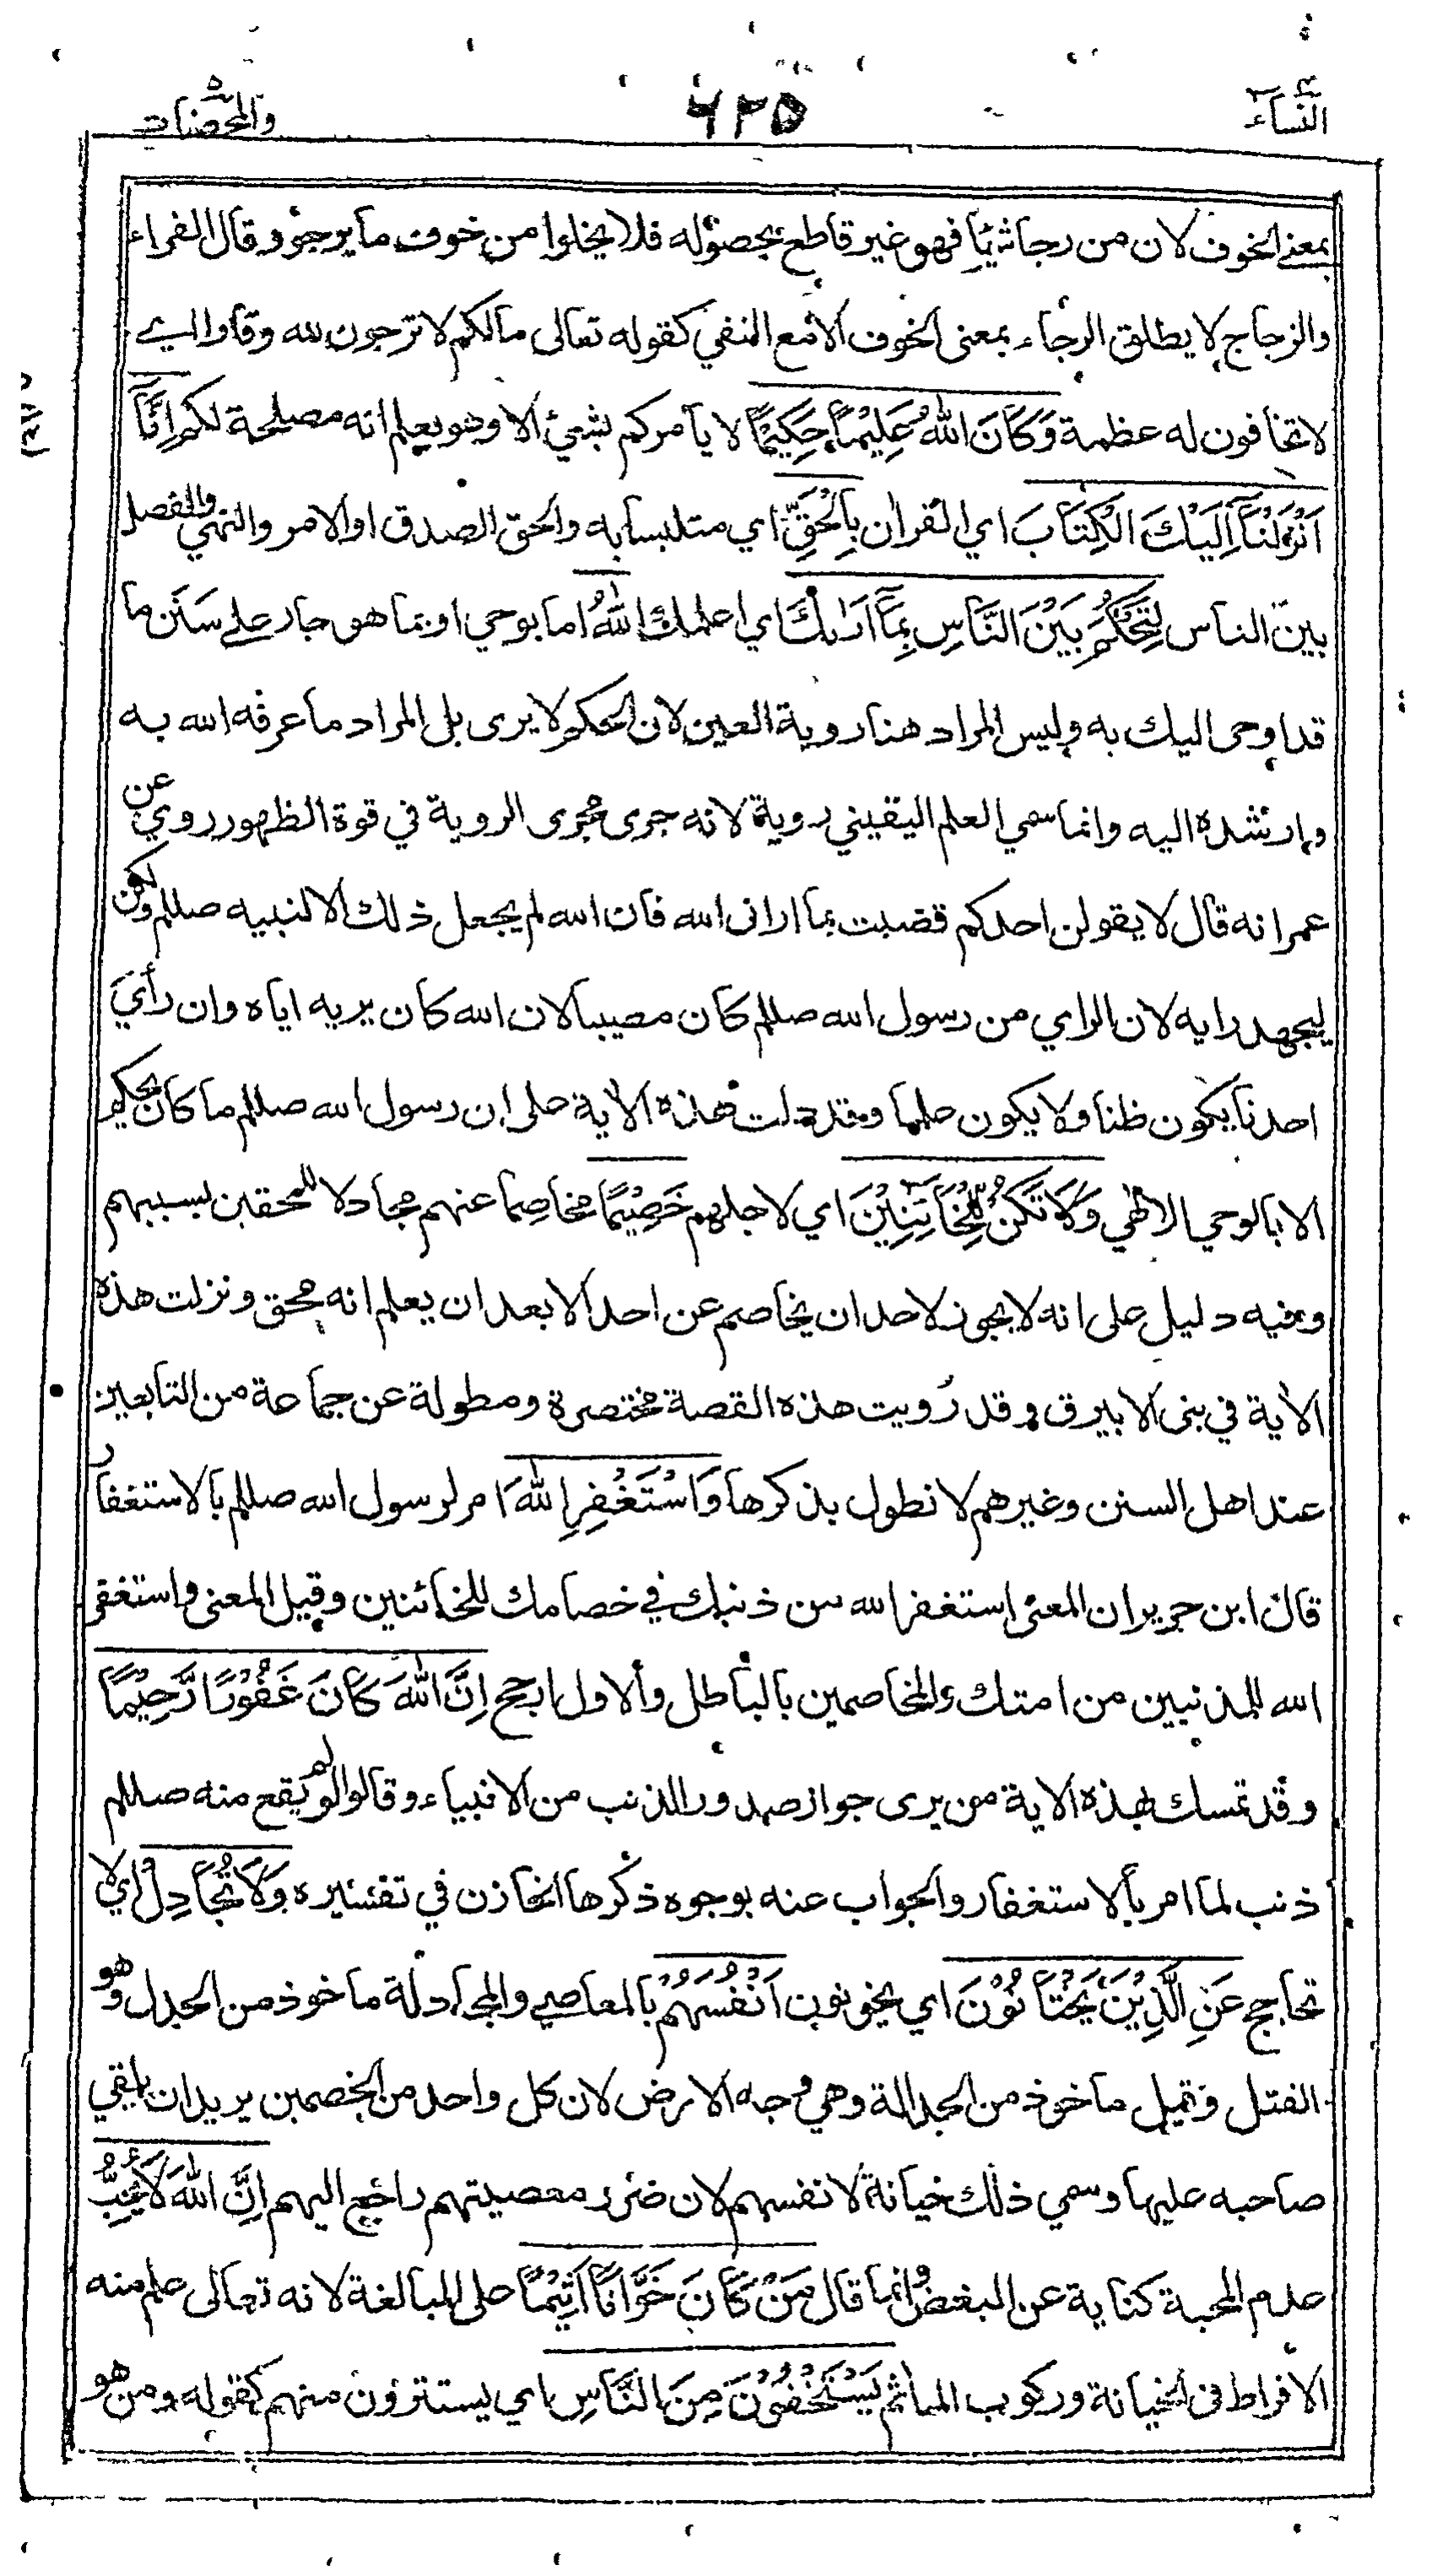 النساء ٦٢٥ والمحصنات
بمعنى الخوف لان من رجا شيئا فهو غير قاطع بحصوله فلا يخلوا من خوف ما يرجو وقال الفراء
والزجاج لا يطلق الرجاء بمعنى الخوف الا مع النفي كقوله تعالى ما لكم لا ترجون لله وقارا اي
لا تخافون له عظمة وَكَانَ اللهُ عَلِيْمًا حَكِيْمًا لا يامركم بشيئ الا وهو يعلم انه مصلحة لكم اِنَّا
اَنْزَلْنَا اِلَيْكَ الْكِتَابَ اي القران بِالْحَقِّ اي متلبسا به والحق الصدق او الامر والنهي والفصل
بين الناس لِتَحْكُمَ بَيْنَ النَّاسِ بِمَا اَرَاكَ اي اعلمك اللهُ اما بوحي او بما هو جار على سَنَن ما
قد اوحى اليك به وليس المراد هنا روية العين لان الحكم لا يرى بل المراد ما عرفه الله به
وارشده اليه وانما سمي العلم اليقيني روية لانه جرى مجرى الروية في قوة الظهور روي عن
عمر انه قال لا يقولن احدكم قضيت بما ارانى الله فان الله لم يجعل ذلك الا لنبيه صللم ولكن
ليجهد رايه لان الراي من رسول الله صللم كان مصيبا لان الله كان يريه اياه وان رأي
احدنا يكون ظنا ولا يكون علما وقد دلت هذه الاية على ان رسول الله صللم ما كان يحكم
الا بالوحي الالهي وَلَا تَكُنْ لِلْخَائِنِيْنَ اي لاجلهم خَصِيْمًا مخاصما عنهم مجادلا للمحقين بسببهم
وفيه دليل على انه لا يجوز لاحد ان يخاصم عن احد الا بعد ان يعلم انه محق ونزلت هذه
الاية في بنى الابيرق وقد رُويت هذه القصة مختصرة ومطولة عن جماعة من التابعين
عند اهل السنن وغيرهم لا نطول بذكرها وَاسْتَغْفِرِ اللهَ امر لرسول الله صللم بالاستغفار
قال ابن جرير ان المعنى استغفر الله من ذنبك في خصامك للخائنين وقيل المعنى واستغفر
الله للمذنبين من امتك والمخاصمين بالباطل والاول ارجح اِنَّ اللهَ كَانَ غَفُوْرًا رَّحِيْمًا
وقد تمسك بهذه الاية من يرى جواز صدور الذنب من الانبياء وقالوا لو لم يقع منه صللم
ذنب لما امر بالاستغفار والجواب عنه بوجوه ذكرها الخازن في تفسيره وَلَا تُجَادِلْ اي لا
تحاجج عَنِ الَّذِيْنَ يَخْتَانُوْنَ اي يخونون اَنْفُسَهُمْ بالمعاصي والمجادلة ماخوذ من الجدل وهو
الفتل وقيل ماخوذ من الجدالة وهي وجه الارض لان كل واحد من الخصمين يريد ان يلقي
صاحبه عليها وسمي ذلك خيانة لانفسهم لان ضرر معصيتهم راجع اليهم اِنَّ اللهَ لَا يُحِبُّ
عدم المحبة كناية عن البغض وانما قال مَنْ كَانَ خَوَّانًا اَثِيْمًا على المبالغة لانه تعالى علم منه
الافراط في الخيانة وركوب الماثم يَسْتَخْفُوْنَ مِنَ النَّاسِ اي يستترؤن منهم كقوله ومن هو